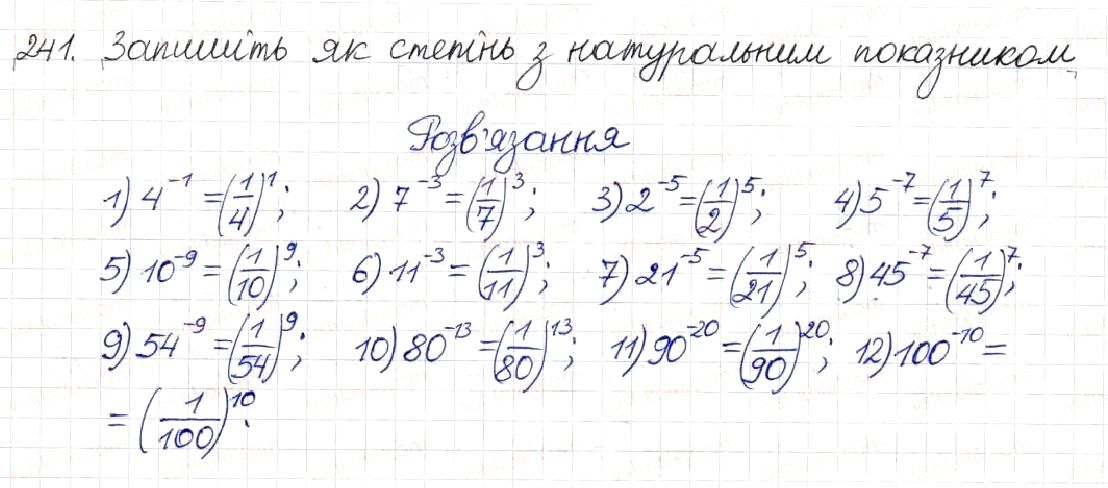 241. Запишіть як степінь з натуральним показником,
Розв'язання
1) 4⁻¹ = (1/4)¹; 2) 7⁻³ = (1/7)³; 3) 2⁻⁵ = (1/2)⁵; 4) 5⁻⁷ = (1/5)⁷;
5) 10⁻⁹ = (1/10)⁹; 6) 11⁻³ = (1/11)³; 7) 21⁻⁵ = (1/21)⁵; 8) 45⁻⁷ = (1/45)⁷;
9) 54⁻⁹ = (1/54)⁹; 10) 80⁻¹³ = (1/80)¹³; 11) 90⁻²⁰ = (1/90)²⁰; 12) 100⁻¹⁰ =
= (1/100)¹⁰.